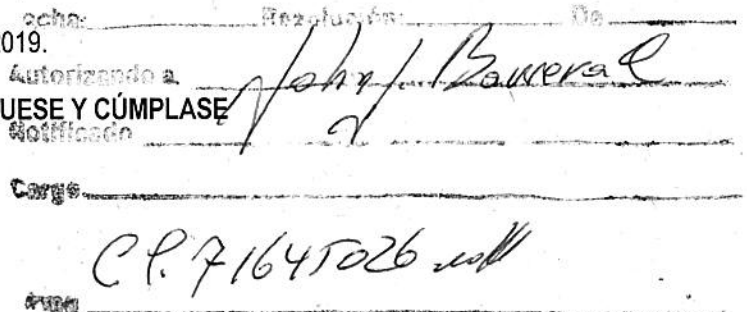 echa: Resolución: De
2019.
Autorizando a John J Barrera C
UESE Y CÚMPLASE
Notificado
Cargo
C.C. 71645026